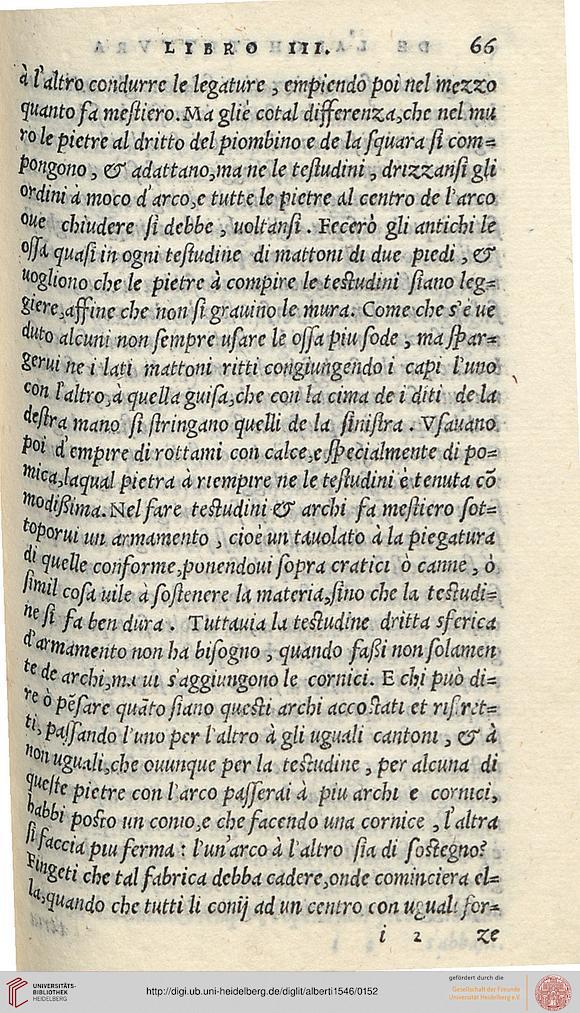 LIBRO III. 66
à l'altro condurre le legature , empiendo poi nel mezzo
quanto fa meſtiero. Ma glié cotal differenza,che nel mu
ro le pietre al dritto del piombino e de la ſquara ſi com=
pongono , & adattano,ma ne le teſtudini , drizzanſi gli
ordini à moco d'arco,e tutte le pietre al centro de l'arco
oue chiudere ſi debbe , uoltanſi . Fecerò gli antichi le
oſſa quaſi in ogni teſtudine di mattoni di due piedi , &
uogliono che le pietre à compire le teſtudini ſiano leg=
giere,affine che non ſi grauino le mura. Come che s'é ue
duto alcuni non ſempre uſare le oſſa piu ſode , ma ſpar=
gerui ne i lati mattoni ritti congiungendo i capi l'uno
con l'altro,à quella guiſa,che con la cima de i diti de la
deſtra mano ſi ſtringano quelli de la ſiniſtra . Vſauano
poi d'empire di rottami con calce,e ſpecialmente di po=
mica,laqual pietra à riempire ne le teſtudini é tenuta cō
modiſſima. Nel fare teſtudini & archi fa meſtiero ſot=
toporui un armamento , cioé un tauolato à la piegatura
di quelle conforme,ponendoui ſopra cratici ò canne , ò
ſimil coſa uile à ſoſtenere la materia,ſino che la teſtudi=
ne ſi fa ben dura . Tuttauia la teſtudine dritta sferica
d'armamento non ha biſogno , quando faſſi non ſolamen
te de archi,ma ui s'aggiungono le cornici. E chi può di=
re ò pēſare quāto ſiano queſti archi accoſtati et riſtret=
ti, paſſando l'uno per l'altro à gli uguali cantoni , & à
non uguali,che ouunque per la teſtudine , per alcuna di
queſte pietre con l'arco paſſerai à piu archi e cornici,
habbi poſto un conio,e che facendo una cornice , l'altra
ſi faccia piu ferma : l'un'arco à l'altro ſia di ſoſtegno?
Fingeti che tal fabrica debba cadere,onde comincierà el=
la,quando che tutti li conij ad un centro con uguali for=
i 2 ze
UNIVERSITÄTS-
BIBLIOTHEK
HEIDELBERG
http://digi.ub.uni-heidelberg.de/diglit/alberti1546/0152
gefördert durch die
Gesellschaft der Freunde
Universität Heidelberg e.V.